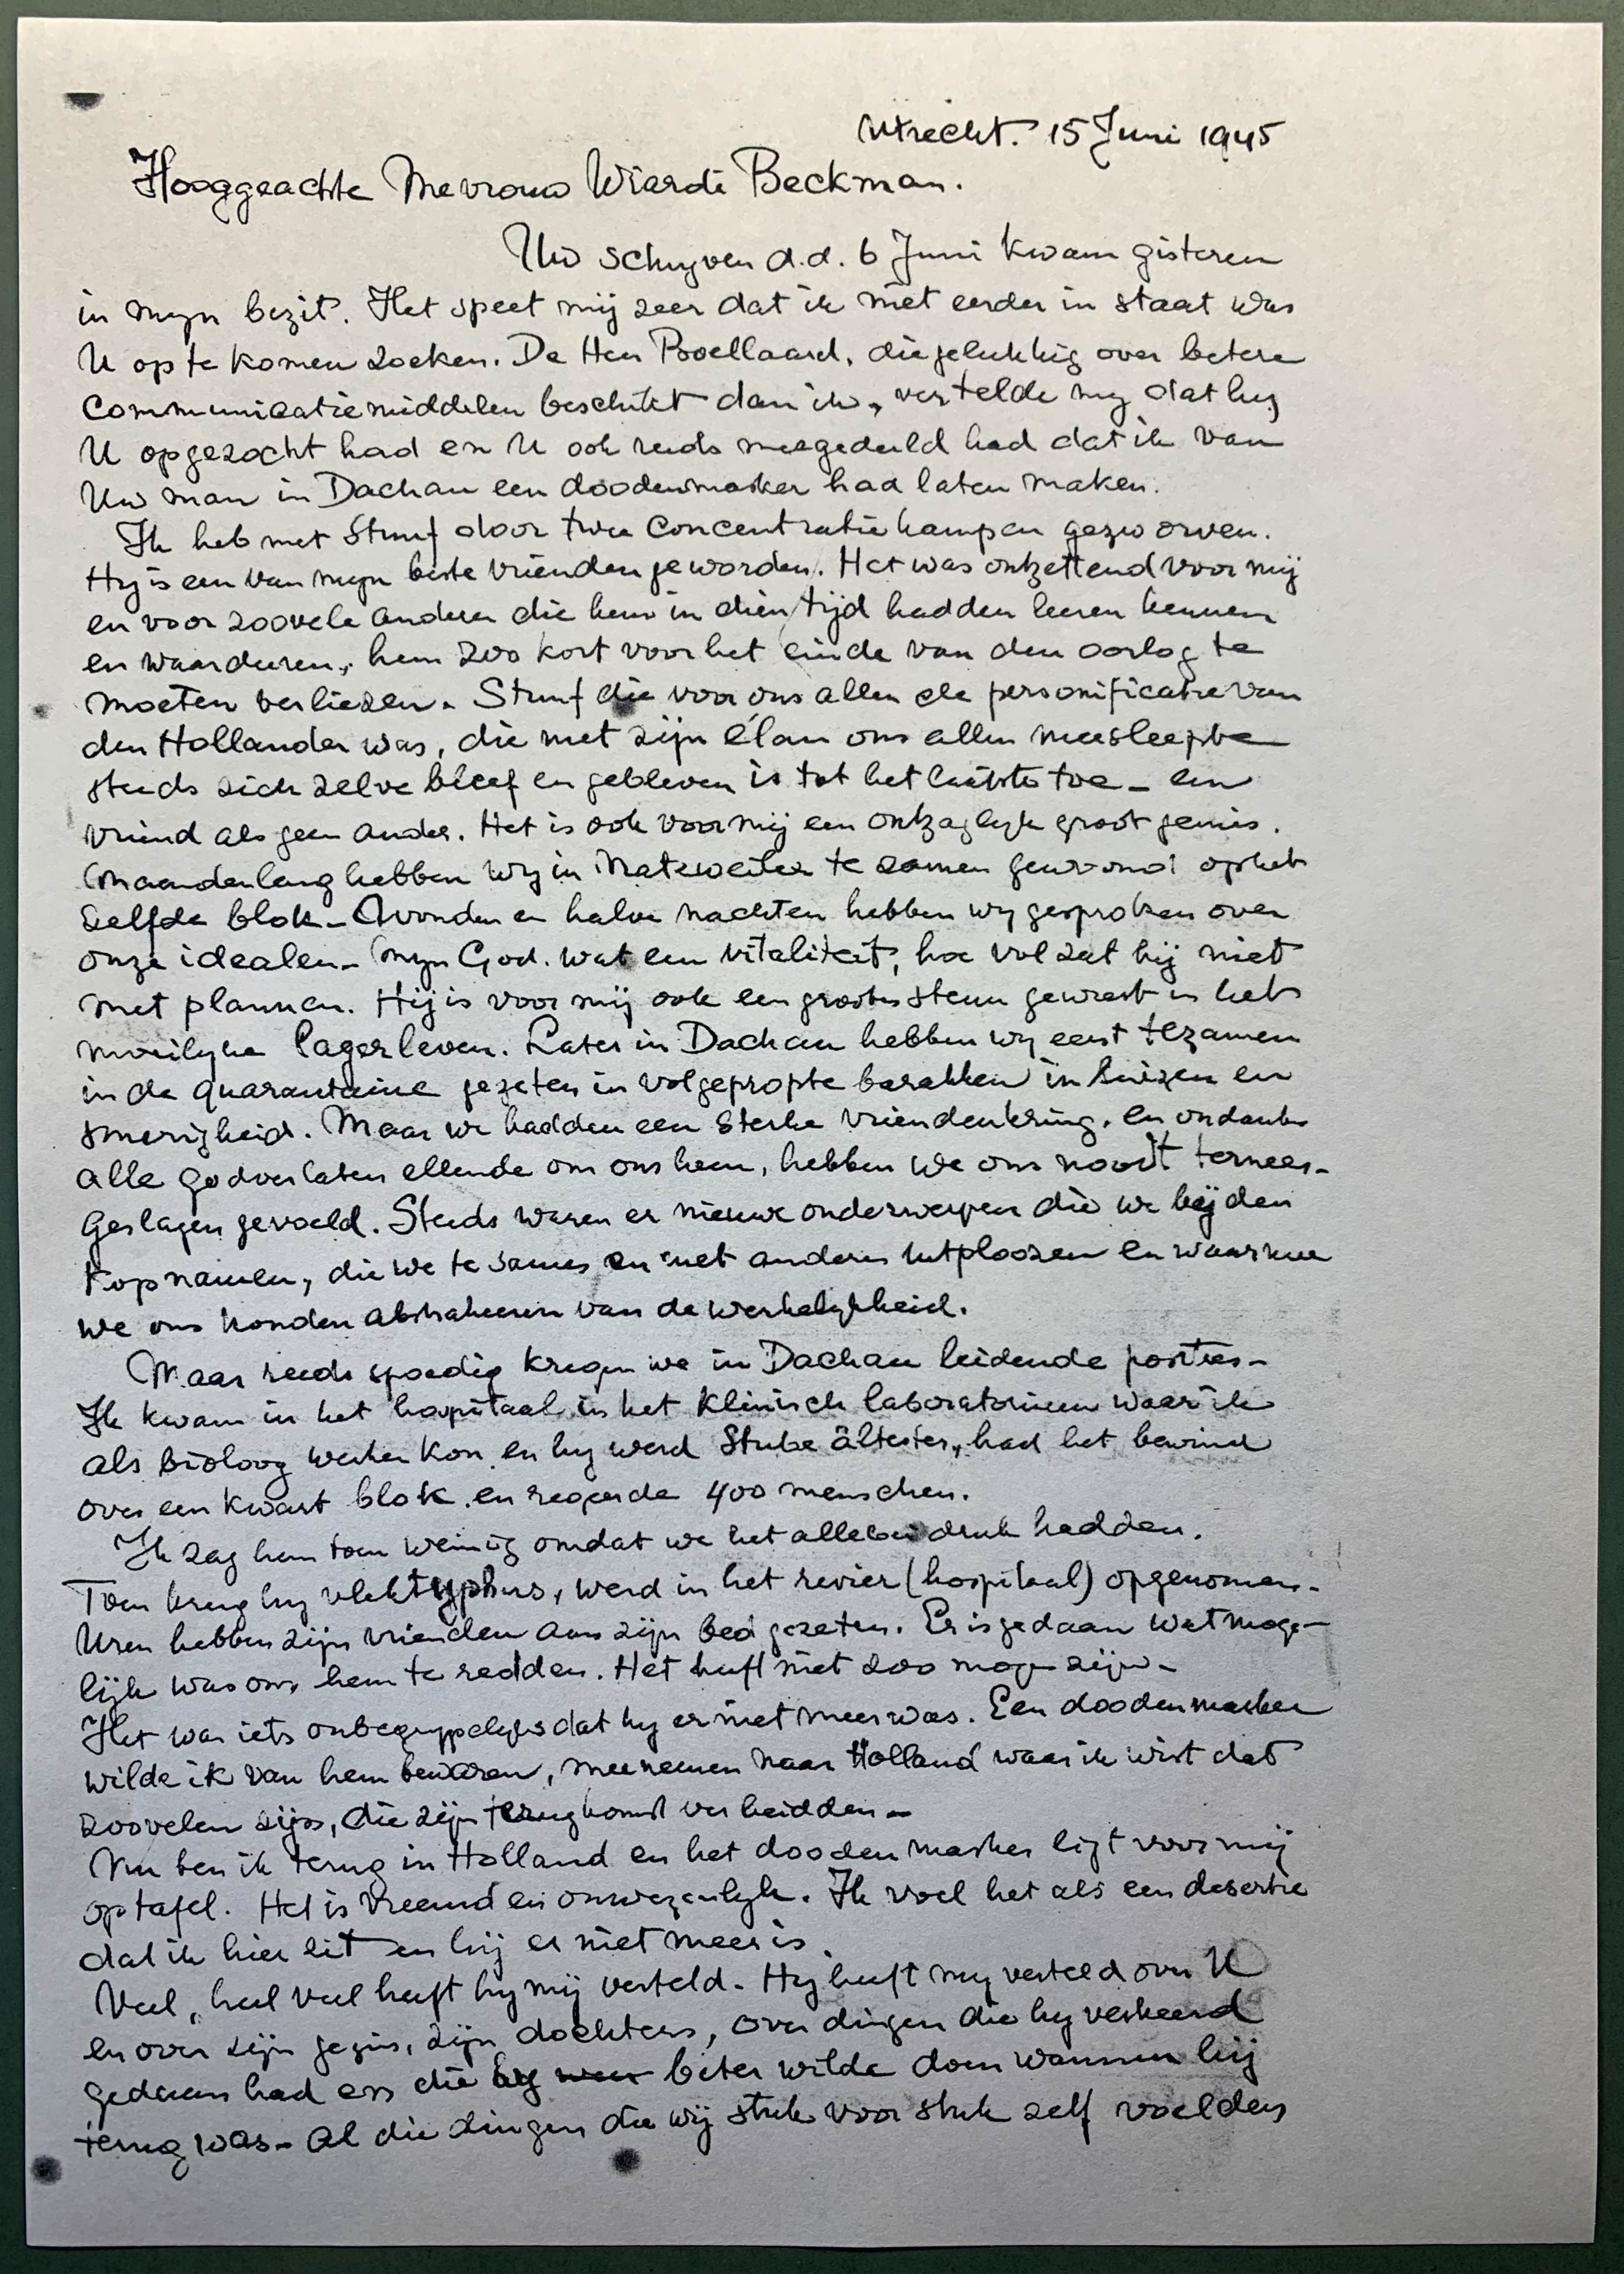 Utrecht. 15 Juni 1945
Hooggeachte Mevrouw Wiardi Beckman.
Uw schryven d.d. 6 Juni kwam gisteren
in myn bezit. Het speet mij zeer dat ik niet eerder in staat was
U op te komen zoeken. De Heer Boellaard, die gelukkig over betere
communicatiemiddelen beschikt dan ik, vertelde my dat hy
U opgezocht had en U ook reeds meegedeeld had dat ik van
Uw man in Dachau een doodenmasker had laten maken.
Ik heb met Stuuf door twee Concentratiekampen gezworven.
Hy is een van myn beste vrienden geworden. Het was ontzettend voor mij
en voor zoovele anderen die hem in dien tijd hadden leeren kennen
en waardeeren, hem zoo kort voor het einde van den oorlog te
moeten verliezen. Stuuf die voor ons allen de personificatie van
den Hollander was, die met zijn élan ons allen meesleepte
steeds zich zelve bleef en gebleven is tot het laatste toe - een
vriend als geen ander. Het is ook voor mij een ontzaglyk groot gemis.
Maandenlang hebben wy in Natzweiler te zamen gewoond op het
zelfde blok - Avonden en halve nachten hebben wy gesproken over
onze idealen - Myn God. wat een vitaliteit, hoe vol zat hij niet
met plannen. Hij is voor mij ook een groote steun geweest in het
moeilyke lagerleven. Later in Dachau hebben wy eerst tezamen
in de quarantaine gezeten in volgepropte barakken in luizen en
smerigheid. Maar we hadden een sterke vriendenkring. en ondanks
alle godverlaten ellende om ons heen, hebben we ons nooit terneer-
geslagen gevoeld. Steeds waren er nieuwe onderwerpen die we bij den
kop namen, die we te samen en met anderen uitploozen en waarmee
we ons konden abstraheeren van de werkelykheid.
Maar reeds spoedig kregen we in Dachau leidende posities -
Ik kwam in het hospitaal in het Klinisch laboratorium waar ik
als bioloog werken kon en hy werd Stube ältester, had het bewind
over een kwart blok en regeerde 400 menschen.
Ik zag hem toen weinig omdat we het allebei druk hadden.
Toen kreeg hy vlektyphus, werd in het revier (hospitaal) opgenomen -
Uren hebben zijn vrienden aan zijn bed gezeten. Er is gedaan wat moge-
lijk was om hem te redden. Het heeft niet zoo mogen zijn -
Het was iets onbegrypelyks dat hy er niet meer was. Een doodenmasker
wilde ik van hem bewaren, meenemen naar Holland waar ik wist dat
zoovelen zijn, die zijn terugkomst verbeidden -
Nu ben ik terug in Holland en het dooden masker ligt voor mij
op tafel. Het is vreemd en onwezenlyk. Ik voel het als een desertie
dat ik hier zit en hij er niet meer is.
Veel, heel veel heeft hy mij verteld - Hy heeft my verteld over U
en over zijn gezin, zijn dochters, over dingen die hy verkeerd
gedaan had en die hy weer beter wilde doen wanneer hij
terug was - Al die dingen die wij stuk voor stuk zelf voelden